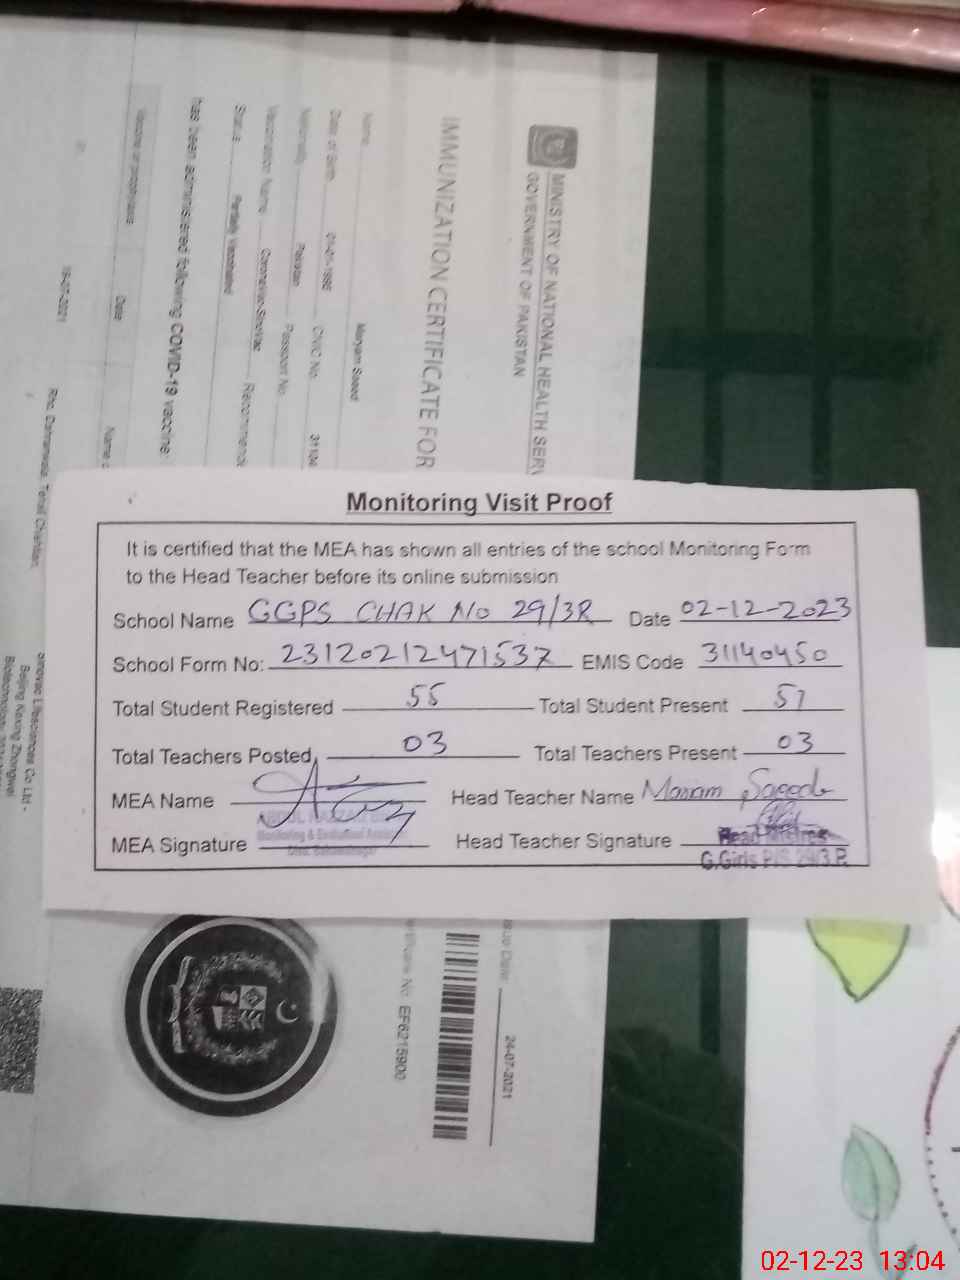 MINISTRY OF NATIONAL HEALTH SERV
GOVERNMENT OF PAKISTAN
IMMUNIZATION CERTIFICATE FOR
Name Maryam Saeed
Date of Birth 01-01-1986 CNIC No. 31104
Nationality Pakistan Passport No.
Vaccination Name CoronaVac-SinoVac Recommende
Status Partially Vaccinated
has been administered following COVID-19 vaccine:
Vaccine or prophylaxis Date Name o
Tehsil Chishtian,
Sinovac Lifesciences Co Ltd -
Beijing Kexing Zhongwei
Monitoring Visit Proof
It is certified that the MEA has shown all entries of the school Monitoring Form
to the Head Teacher before its online submission
School Name GGPS CHAK No 29/3R Date 02-12-2023
School Form No: 23120212471537 EMIS Code 31140450
Total Student Registered 55 Total Student Present 51
Total Teachers Posted 03 Total Teachers Present 03
MEA Name Head Teacher Name Mariam Saeed
MEA Signature Head Teacher Signature
Monitoring & Evaluation
Head
G.Girls P/S 29/3.R
sue Date 24-07-2021
No. EF6215900
02-12-23 13:04